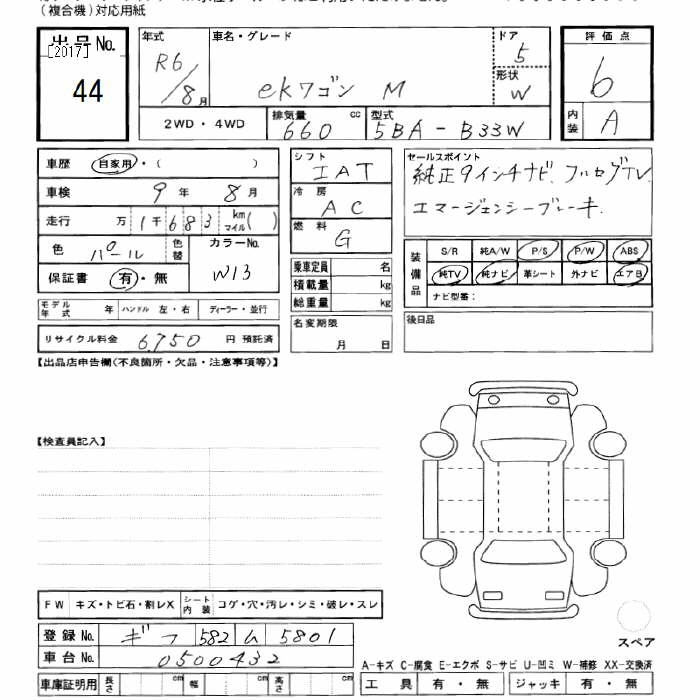 (複合機)対応用紙
出品No. [2017] 44
年式 R6/8月
車名・グレード ekワゴン M
ドア 5
形状 W
評価点 6
内装 A
2WD・4WD
排気量 660 cc
型式 5BA-B33W
車歴 自家用・( )
車検 9年 8月
走行 万 1千683 km マイル( )
色 パール 色替
カラーNo. W13
保証書 有・無
モデル年式 年 ハンドル 左・右 ディーラー・並行
リサイクル料金 6,750 円 預託済
シフト IAT
冷房 AC
燃料 G
乗車定員 名
積載量 kg
総重量 kg
名変期限 月 日
セールスポイント
純正9インチナビ. フルセグTV.
エマージェンシーブレーキ.
装備品
S/R 純A/W P/S P/W ABS
純TV 純ナビ 革シート 外ナビ エアB
ナビ型番:
後日品
【出品店申告欄(不良箇所・欠品・注意事項等)】
【検査員記入】
FW キズ・トビ石・割レX シート内装 コゲ・穴・汚レ・シミ・破レ・スレ
登録No. ギフ 582 ム 5801
車台No. 0500432
車庫証明用 長さ cm 幅 cm 高さ cm
スペア
A-キズ C-腐食 E-エクボ S-サビ U-凹ミ W-補修 XX-交換済
工具 有・無 ジャッキ 有・無